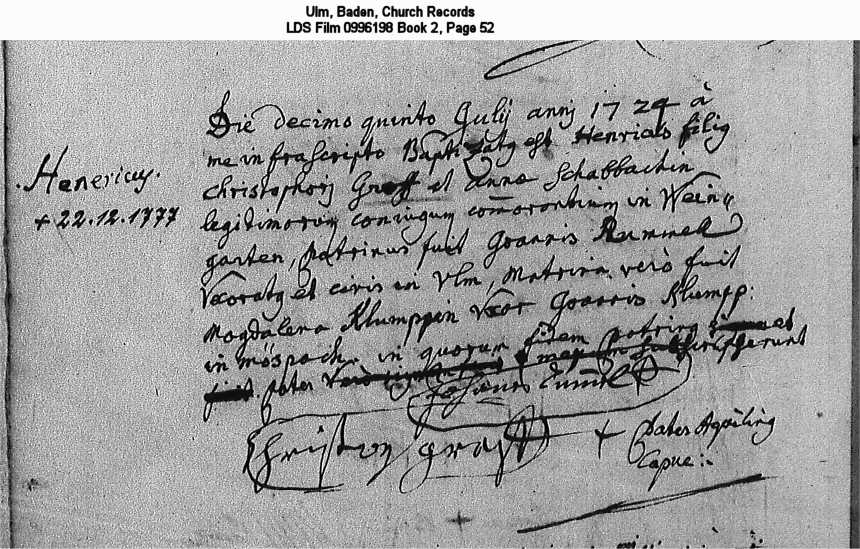 Ulm, Baden, Church Records
LDS Film 0996198 Book 2, Page 52
Die decimo quinto Julij annj 1724 à
me infrascripto Baptizatq est Henrich filiq
Henericus.
Christophorj Groff et Annæ Schabbachin
+ 22.12.1777
legitimorum coniugum comorantium in Wein„
garten, patrinus fuit Joannis Rummel
Uxoratq et civis in Vlm, Matrina verò fuit
Magdalena Klumppin Uxor Joannis Klumpp:
in mösbach. in quorum fidem patrinq et
pater subscripserunt
Johannes
Christian graff
+ Pater Aquilinq
Capuc:.